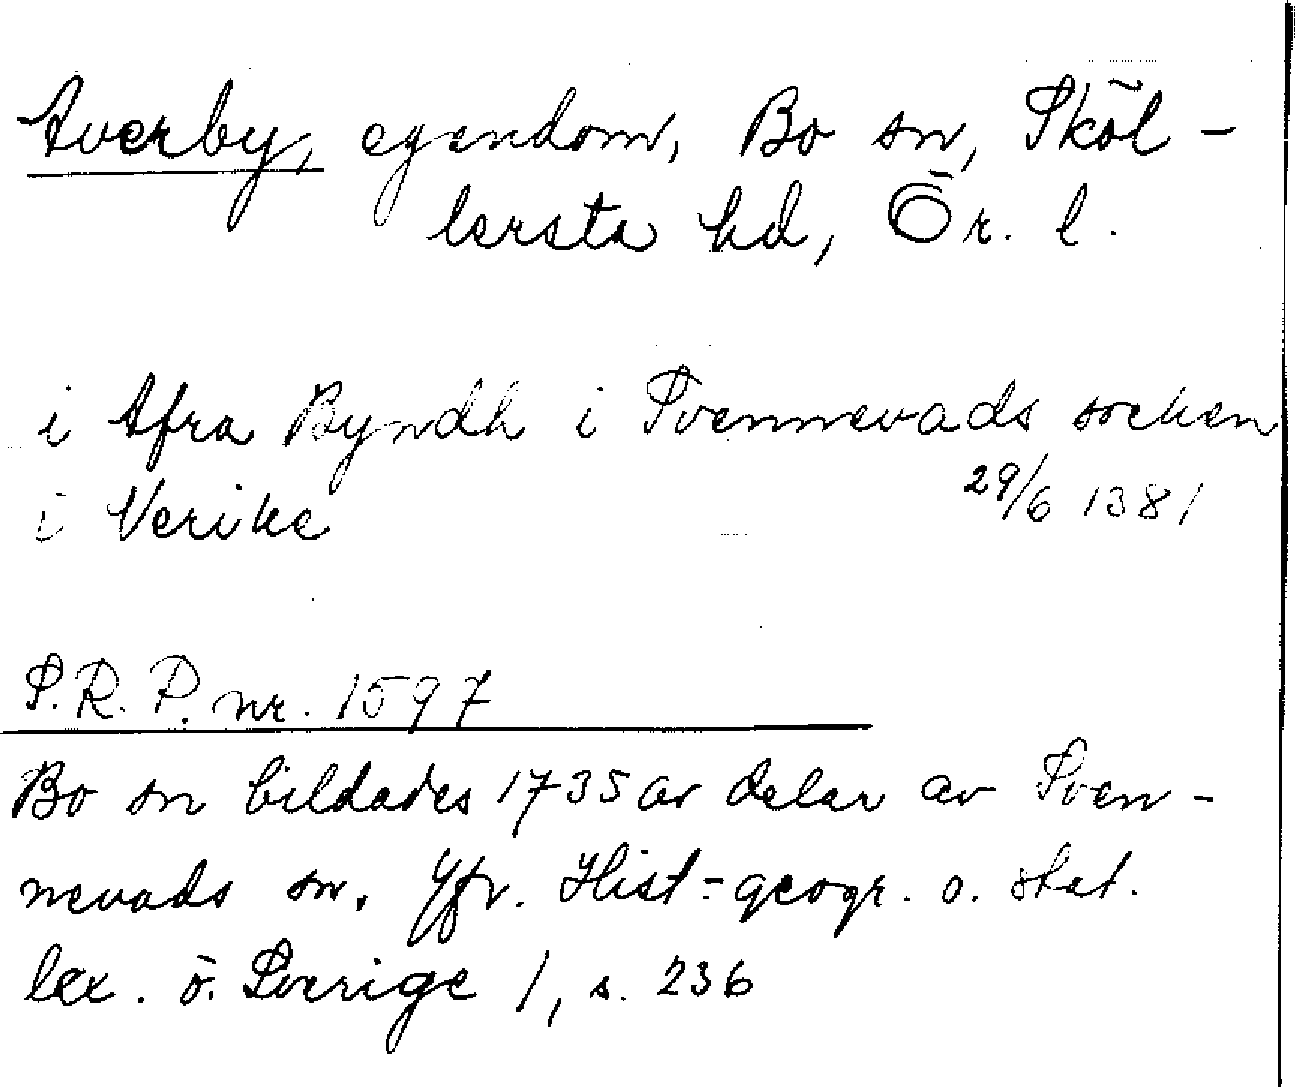 Averby, egendom, Bo sn, Sköl-
lersta hd, Ör. l.
i Afra Byndh i Svennevads socken
i Nerike 29/6 1381
S.R.P. nr. 1597
Bo sn bildades 1735 av delar av Sven-
nevads sn. Jfr. Hist-geogr. o. stat.
lex. ö. Sverige 1, s. 236